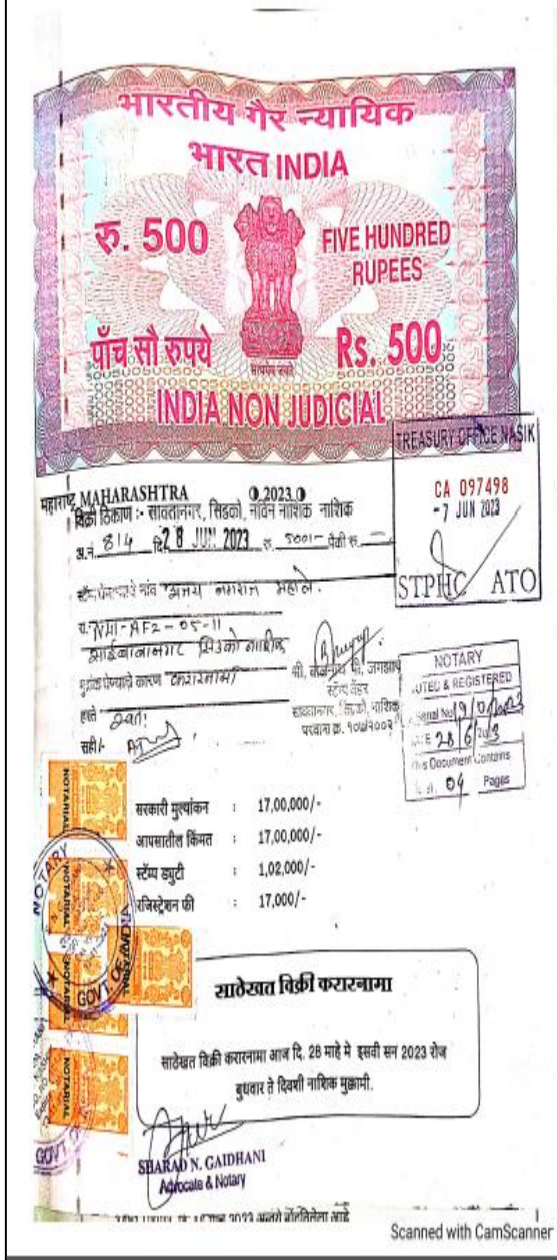 भारतीय गैर न्यायिक
भारत INDIA
रु. 500
FIVE HUNDRED
RUPEES
पाँच सौ रुपये
Rs. 500
सत्यमेव जयते
INDIA NON JUDICIAL
TREASURY OFFICE NASIK
CA 097498
- 7 JUN 2023
STPHC ATO
महाराष्ट्र MAHARASHTRA
2023
विक्री ठिकाण :- सावतानगर, सिडको, नविन नाशिक नाशिक
अ.नं. 814 दि. 28 JUN 2023 रु. 500/- पैकी रु.
नांव अजय महाले.
साईबाबानगर सिडको नाशिक
मुद्रांक घेण्याचे कारण करारनामा
हस्ते स्वतः
सही/-
स्टॅम्प वेंडर
सावतानगर, सिडको, नाशिक
परवाना क्र.
NOTARY
NOTED & REGISTERED
Serial No
DATE 28/6/2023
This Document Contains
04 Pages
सरकारी मुल्यांकन : 17,00,000/-
आपसातील किंमत : 17,00,000/-
स्टॅम्प ड्युटी : 1,02,000/-
रजिस्ट्रेशन फी : 17,000/-
NOTARIAL
NOTARIAL
NOTARIAL
NOTARIAL
NOTARY
GOVT. OF INDIA
साठेखत विक्री करारनामा
साठेखत विक्री करारनामा आज दि. 28 माहे मे इसवी सन 2023 रोज
बुधवार ते दिवशी नाशिक मुक्कामी.
SHARAD N. GAIDHANI
Advocate & Notary
Scanned with CamScanner